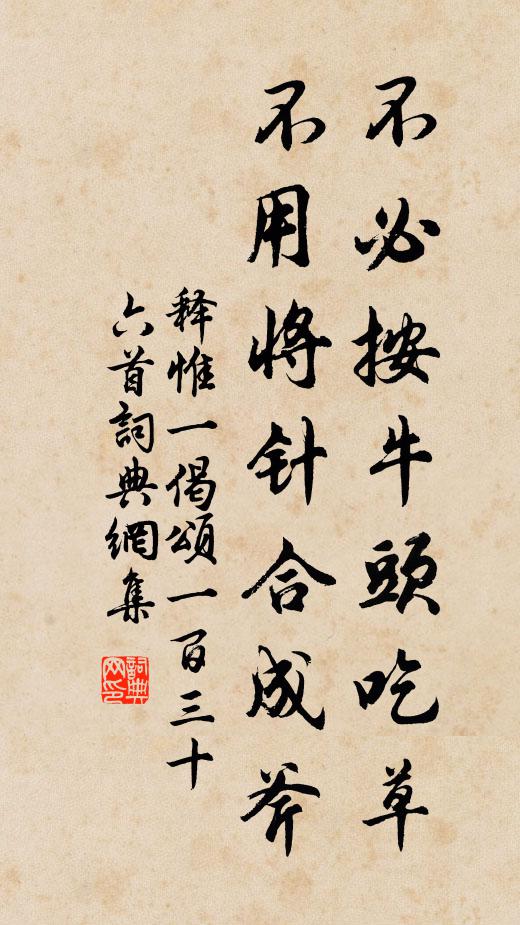 不必按牛頭吃草
不用將针合成斧
释惟一偈頌一百三十
六首詞典網集
詞典网印